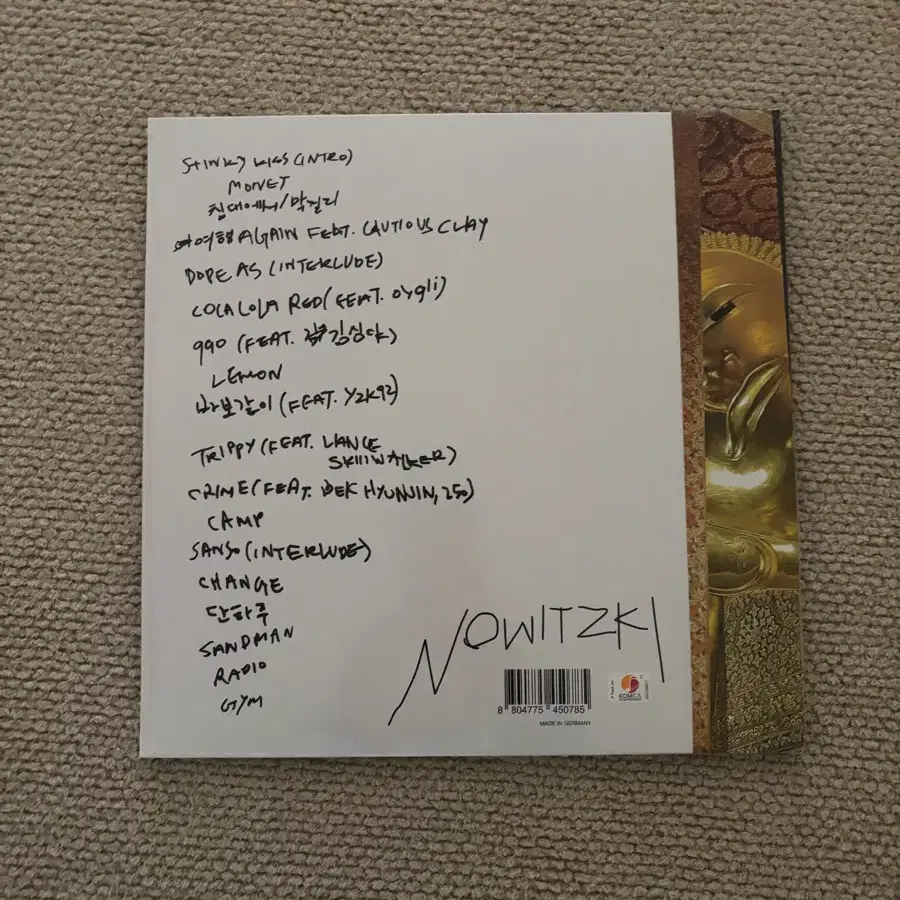 STINKY KISS (INTRO)
MONET
침대에서/막걸리
여행 AGAIN FEAT. CAUTIOUS CLAY
DOPE AS (INTERLUDE)
COCA COLA RED (FEAT. OYGLI)
990 (FEAT. 김심야)
LEMON
바보같이 (FEAT. YZK92)
TRIPPY (FEAT. LANCE
SKIIIWALKER)
CRIME (FEAT. BEK HYUNJIN, 250)
CAMP
SANSO (INTERLUDE)
CHANGE
단하루
SANDMAN
RADIO
GYM
NOWITZKI
8 804775 450785
KOMCA
MADE IN GERMANY